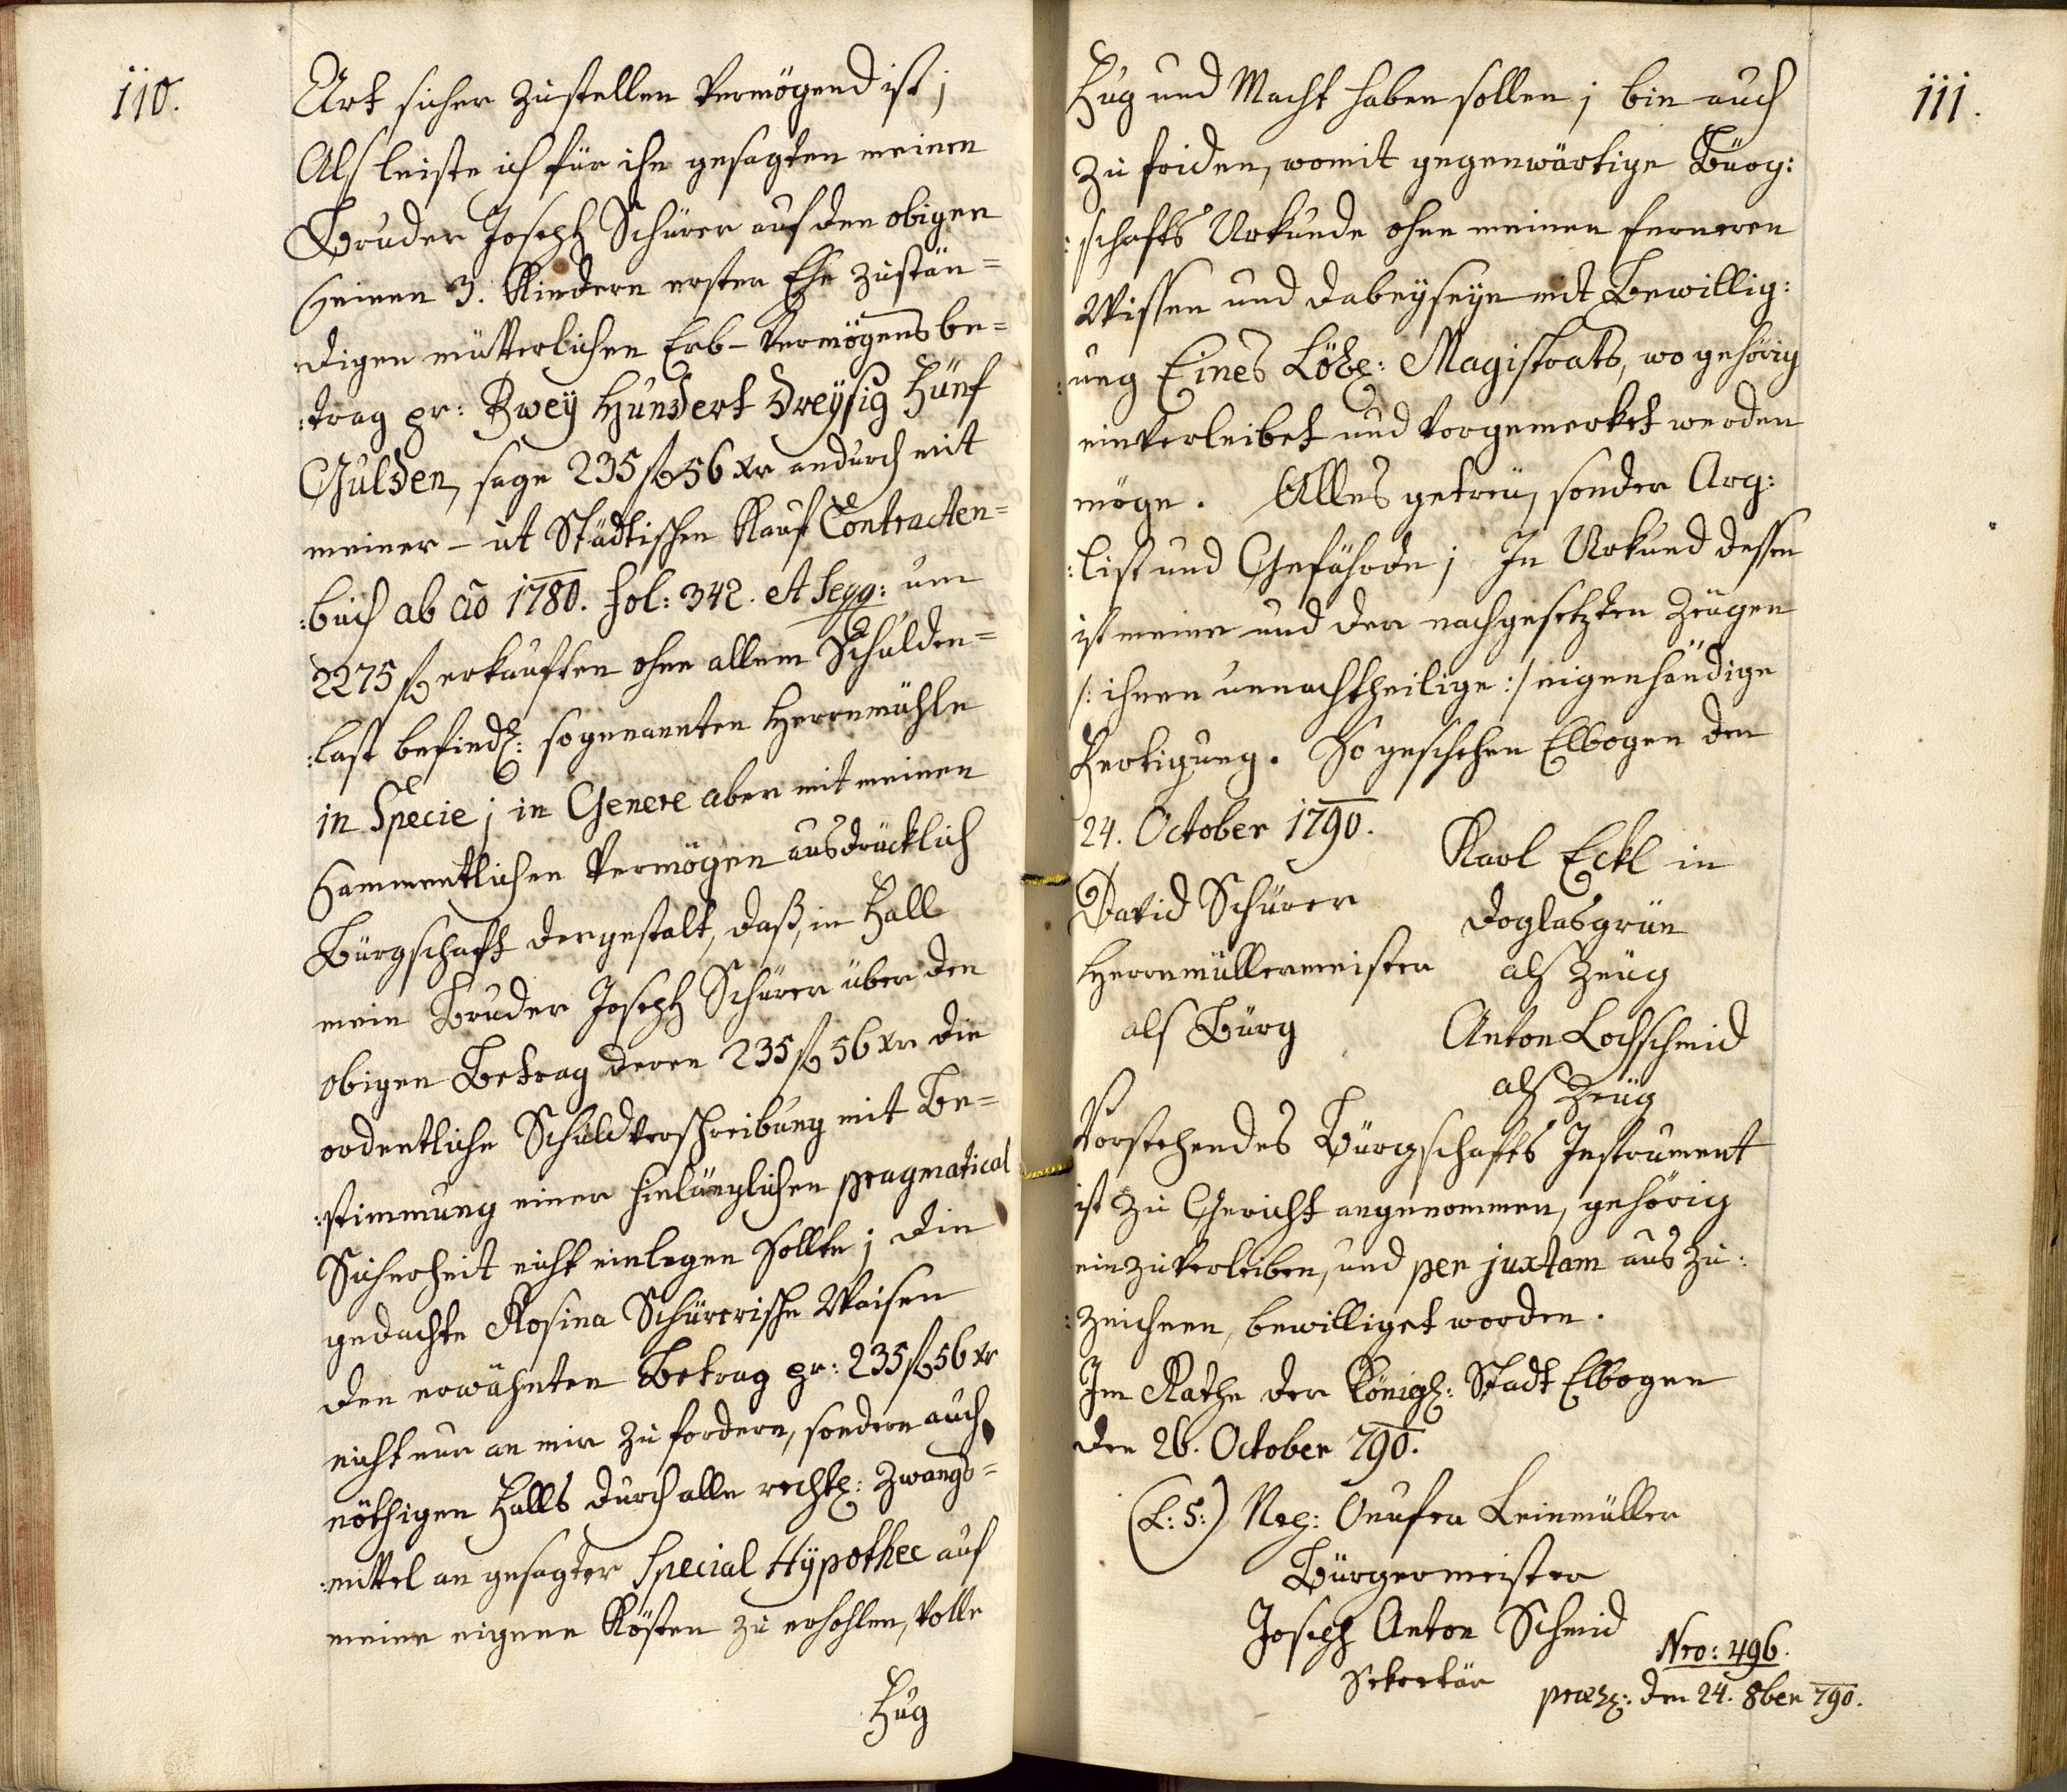 110.
Art sicher zustellen vermögend ist;
Als leiste ich für ihn gesagten meinen
Bruder Joseph Schürer auf den obigen
seinen 3. Kindern erster Ehe zustän=
digen mütterlichen Erb-Vermögens be=
:trag pr: Zwey Hundert Dreyßig Fünf
Gulden, sage 235 f 56 xr andurch mit
meiner - ut Städtischen Kauf Contracten=
:buch ab ao 1780. fol: 342. et seqq: um
2275 f erkauften ohne allem Schulden=
:last befindl: sogenannten Herrnmühle
in Specie; in Genere aber mit meinen
sammentlichen Vermögen ausdrücklich
Bürgschaft dergestalt, daß, in Fall
mein Bruder Joseph Schürer über den
obigen Betrag deren 235 f 56 xr die
ordentliche Schuldverschreibung mit Be=
:stimmung einer hinlänglichen pragmatical
Sicherheit nicht einlegen sollte; die
gedachte Rosina Schürerische Waisen
den erwähnten Betrag pr: 235 f 56 xr
nicht nur an mir zu fordern, sondern auch
nöthigen Falls durch alle rechtl: Zwangs=
:mittel an gesagter Special Hypothec auf
meine eigene Kösten zu erhohlen, volle
Fug
111.
Fug und Macht haben sollen; bin auch
zu friden, womit gegenwärtige Bürg:
:schafts Urkunde ohne meinen ferneren
Wissen und dabeyseyn mit Bewillig:
:ung Eines Löbl: Magistrats, wo gehörig
einverleibet und vorgemerket werden
möge. Alles getreu, sonder Arg:
:list und Gefährde; In Urkund dessen
ist meine und der nachgesetzten Zeugen
/: ihnen unnachtheilige :/ eigenhändige
Fertigung. So geschehen Elbogen den
24. October 1790.
Karl Eckl in
David Schürer
Doglasgrün
Herrnmüllermeister
als Zeug
als Bürg
Anton Lochschmid
als Zeug
Vorstehendes Bürgschafts Instrument
ist zu Gericht angenommen, gehörig
einzuverleiben, und per juxtam aus zu:
:zeichnen, bewilliget worden.
Im Rathe der Königl: Stadt Elbogen
den 26. October 790.
(L:S:) Onufer Leinmüller
Bürgermeister
Joseph Anton Schmid
Sekretär
Nro: 496.
den 24. 8ber 790.